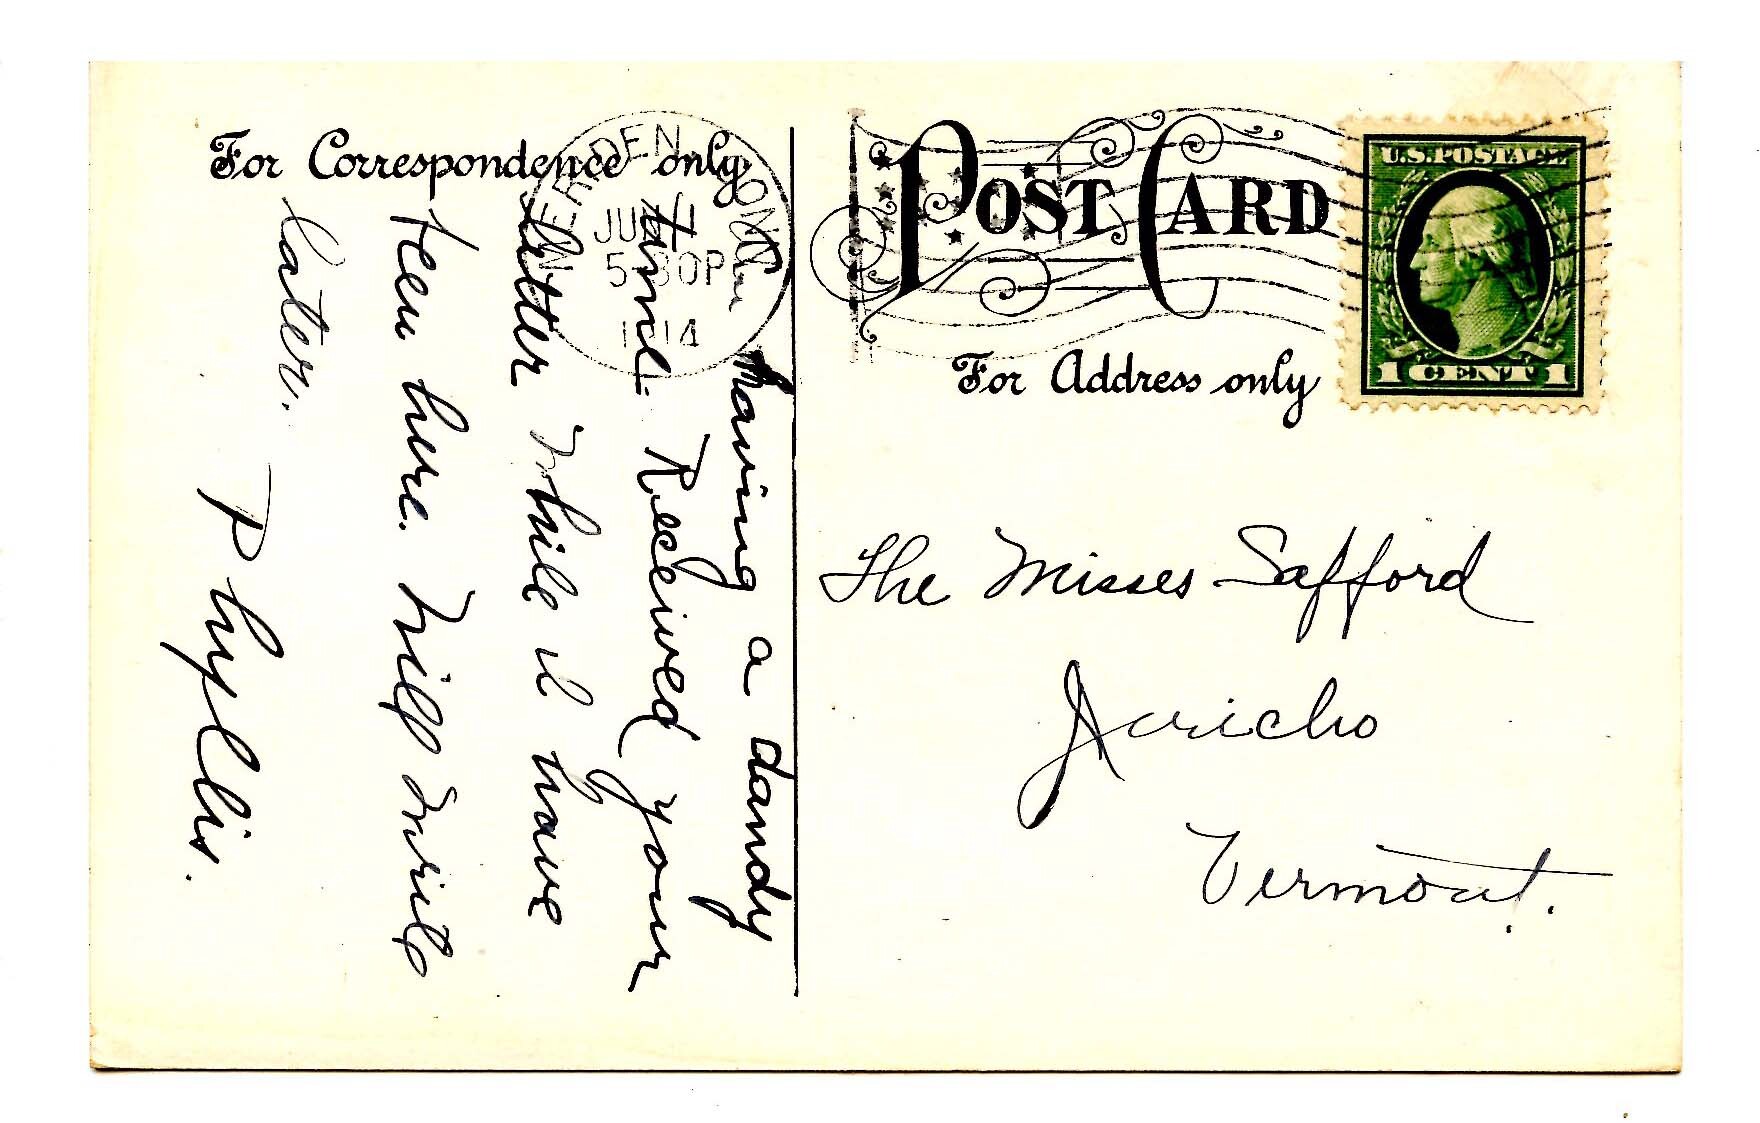 For Correspondence only
POST CARD
U.S. POSTAGE
1 CENT 1
For Address only
MERIDEN, CONN.
5-30P
1914
Am having a dandy
time. Received your
letter while I have
been here. Will write
later.
Phyllis.
The Misses Safford
Jericho
Vermont.